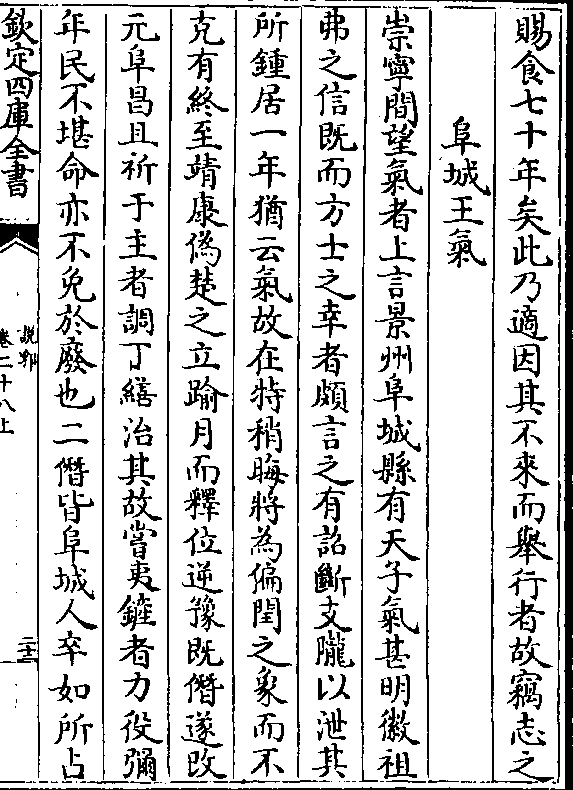 賜食七十年矣此乃適因其不來而舉行者故竊志之
阜城王氣
崇寧間望氣者上言景州阜城縣有天子氣甚明徽祖
弗之信既而方士之幸者頗言之有詔斷支隴以泄其
所鍾居一年猶云氣故在特稍晦將為偏閏之象而不
克有終至靖康偽楚之立踰月而釋位逆豫既僭遂改
元阜昌且祈于主者調丁繕治其故嘗夷鏟者力役彌
年民不堪命亦不免於廢也二僭皆阜城人卒如所占
欽定四庫全書
説郛
卷二十八上
二十二